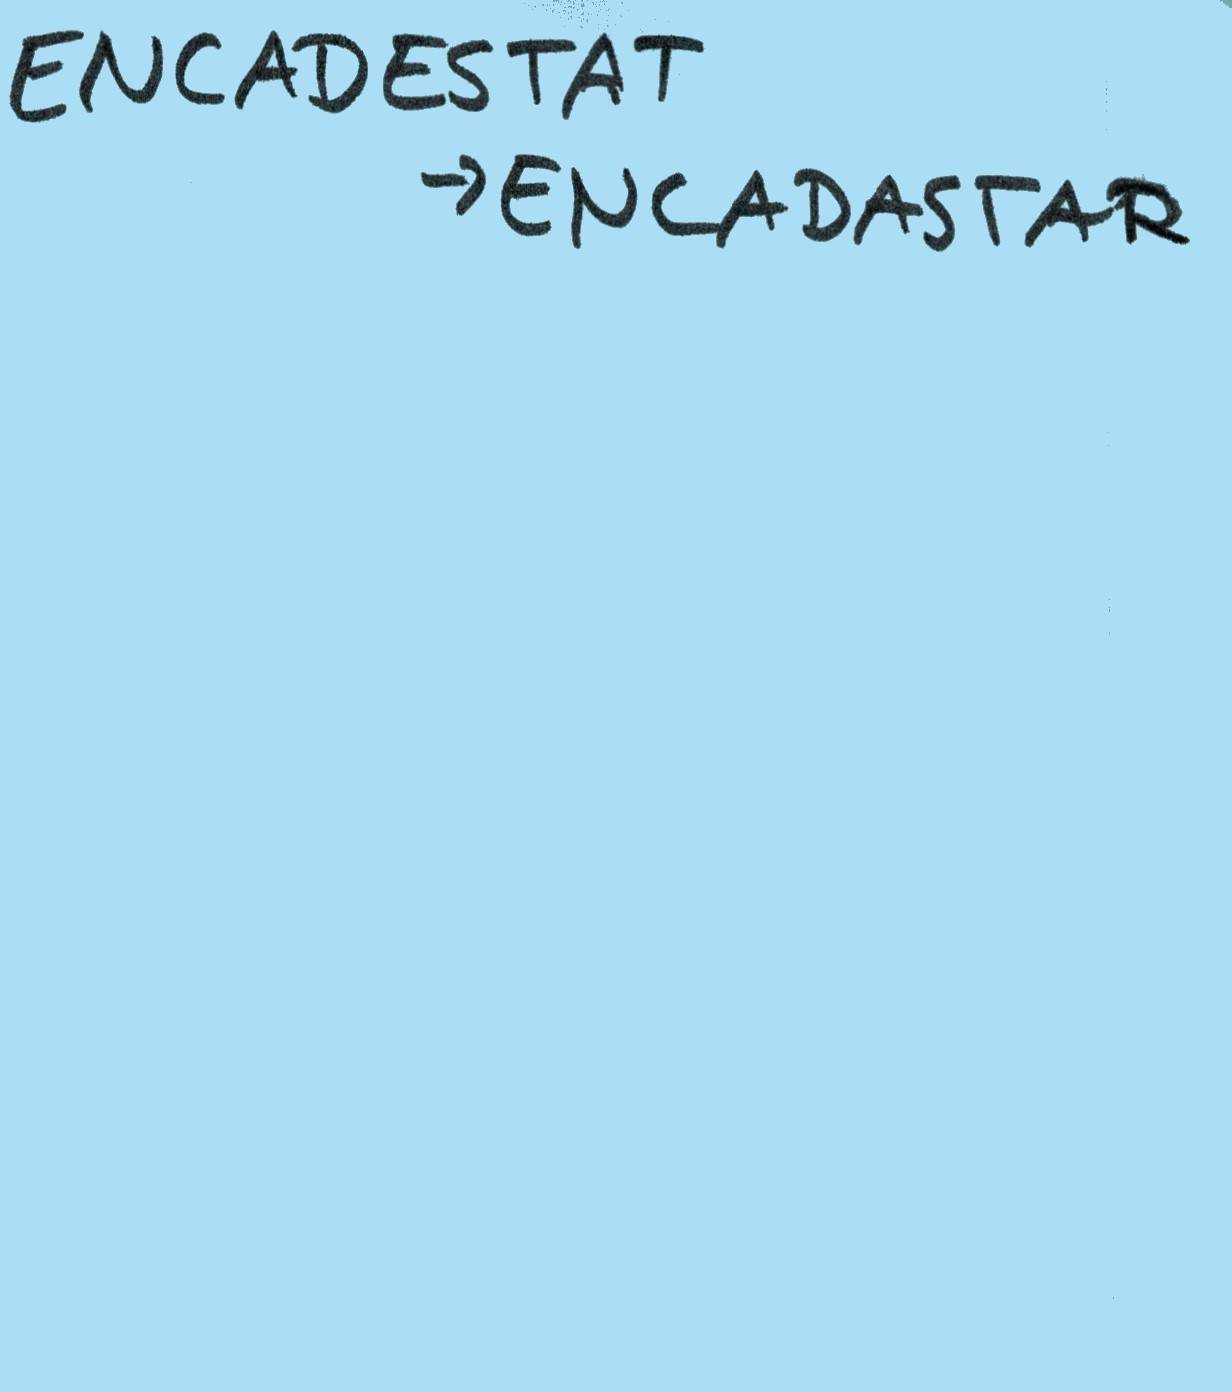 ENCADESTAT
→ENCADASTAR